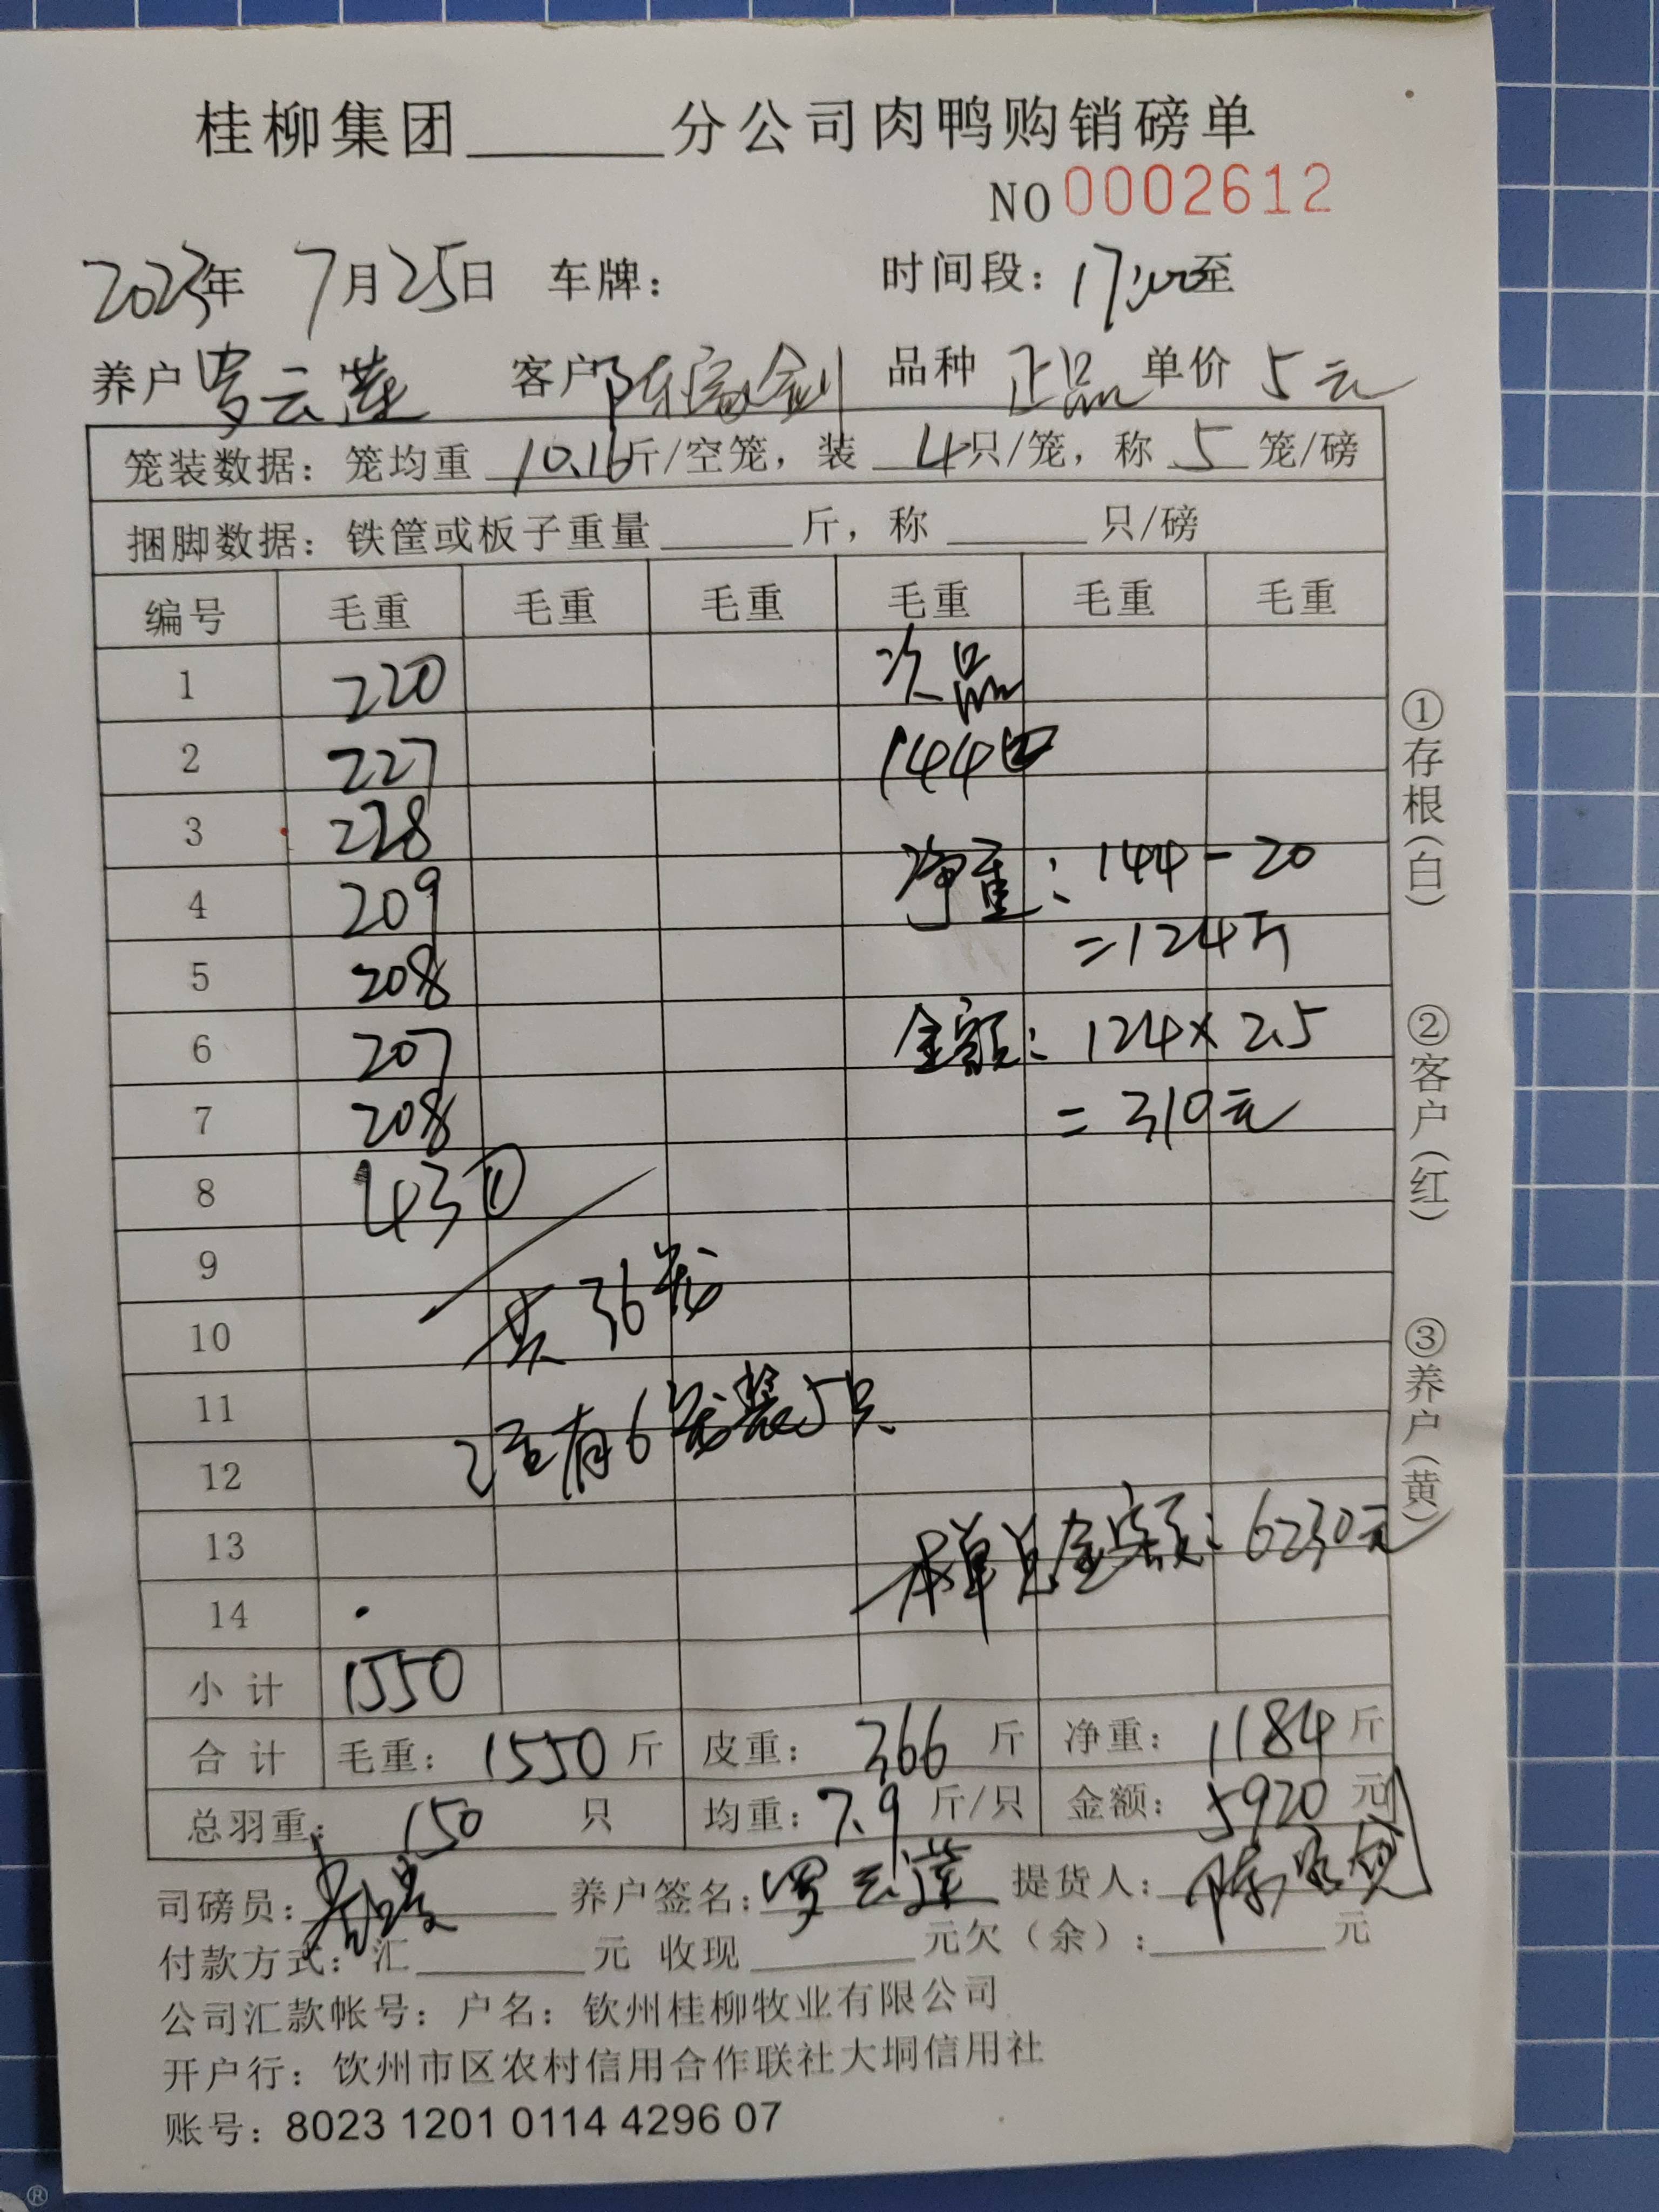 桂柳集团______分公司肉鸭购销磅单
NO 0002612
2023年 7月25日 车牌: 时间段: 17:00至
养户 罗云莲 客户 陈家剑 品种 正品 单价 5元
笼装数据: 笼均重 10.16斤/空笼, 装 4只/笼, 称 5 笼/磅
捆脚数据: 铁筐或板子重量______斤, 称______只/磅
编号 毛重 毛重 毛重 毛重 毛重 毛重
1 220 次品
2 227 144
3 228
4 209 净重: 144-20
5 208 =124斤
6 207 金额: 124×2.5
7 208 =310元
8 43①
9
10 共36笼
11
12 2至有6笼装5只
13 本单总金额: 6230元
14
小计 1550
合计 毛重: 1550斤 皮重: 366 斤 净重: 1184斤
总羽重: 150 只 均重: 7.9 斤/只 金额: 5920元
司磅员: 养户签名: 罗云莲 提货人:
付款方式: 汇______元 收现______元欠(余):______元
公司汇款帐号: 户名: 钦州桂柳牧业有限公司
开户行: 钦州市区农村信用合作联社大垌信用社
账号: 8023 1201 0114 4296 07
①存根(白)
②客户(红)
③养户(黄)
®